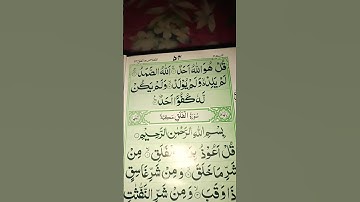 قُلْ هُوَ اللّٰهُ اَحَدٌ ۚ اَللّٰهُ الصَّمَدُ ۚ
لَمْ يَلِدْ ۙ وَلَمْ يُوْلَدْ ۙ وَلَمْ يَكُنْ
لَّهٗ كُفُوًا اَحَدٌ
سُوْرَةُ الْفَلَقِ مَكِّيَّةٌ
بِسْمِ اللّٰهِ الرَّحْمٰنِ الرَّحِيْمِ
قُلْ اَعُوْذُ بِرَبِّ الْفَلَقِ ۙ مِنْ
شَرِّ مَا خَلَقَ ۙ وَمِنْ شَرِّ غَاسِقٍ
اِذَا وَقَبَ ۙ وَمِنْ شَرِّ النَّفّٰثٰتِ